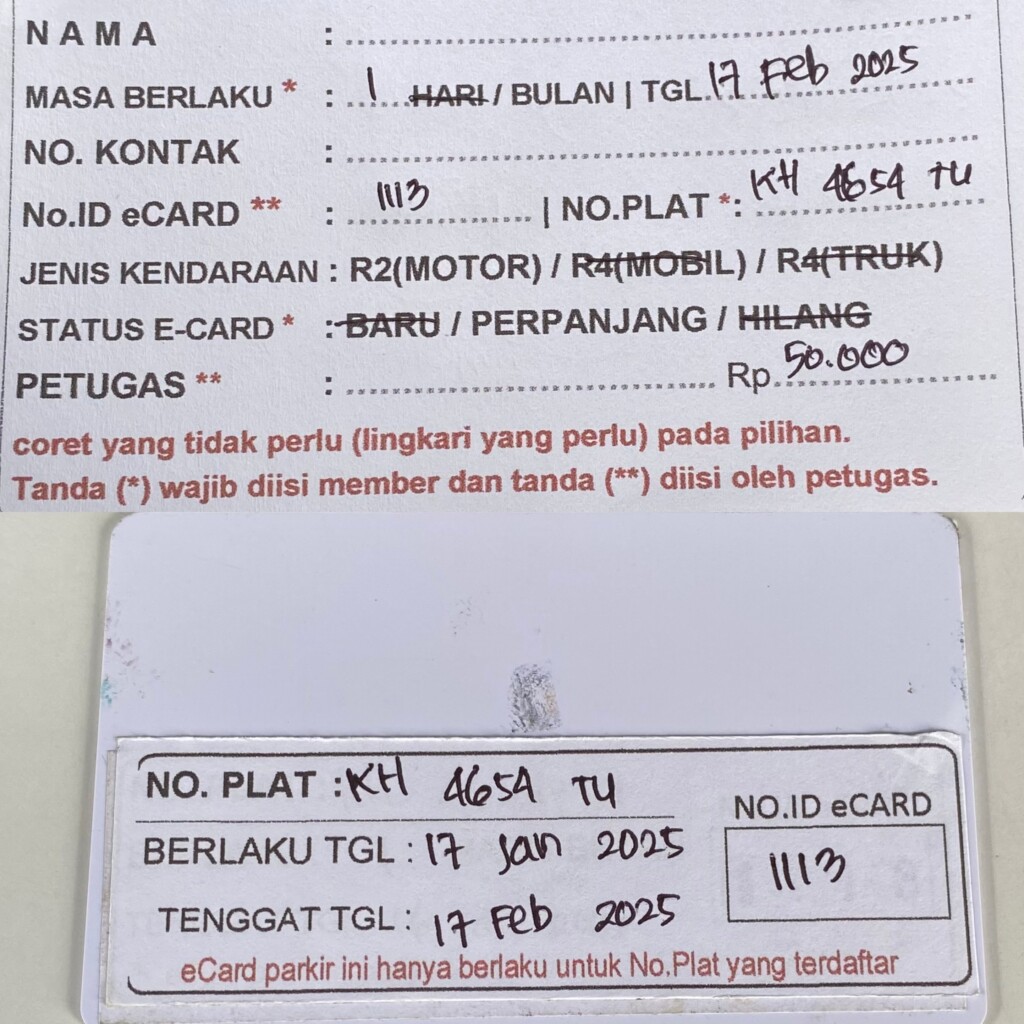 NAMA : 
MASA BERLAKU * : 1 HARI / BULAN | TGL. 17 Feb 2025
NO. KONTAK : 
No.ID eCARD ** : 1113 | NO.PLAT *: KH 4654 TU
JENIS KENDARAAN : R2(MOTOR) / R4(MOBIL) / R4(TRUK)
STATUS E-CARD * : BARU / PERPANJANG / HILANG
PETUGAS ** : Rp. 50.000
coret yang tidak perlu (lingkari yang perlu) pada pilihan.
Tanda (*) wajib diisi member dan tanda (**) diisi oleh petugas.
NO. PLAT : KH 4654 TU
NO.ID eCARD
BERLAKU TGL : 17 Jan 2025
1113
TENGGAT TGL : 17 Feb 2025
eCard parkir ini hanya berlaku untuk No.Plat yang terdaftar